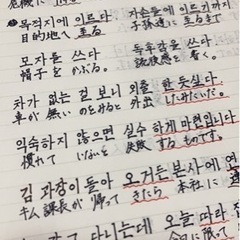 危機に
•목적지에 이르다 자손들에 이르기까지
目的地へ 至る 子孫達に 至るまで
모자를 쓰다. 독후감을 쓰다.
帽子を かぶる。 読後感を 書く。
차가 없는 걸 보니 외출 한 듯싶다.
車が 無い のをみると 外出 したみたいだ。
익숙하지 않으면 실수 하게 마련입니다
慣れて いないと 失敗 するものです。
김 과장이 돌아 오거든 본사에 연
キム 課長が 帰って きたら 本社に 連
다니는데 오늘 따라